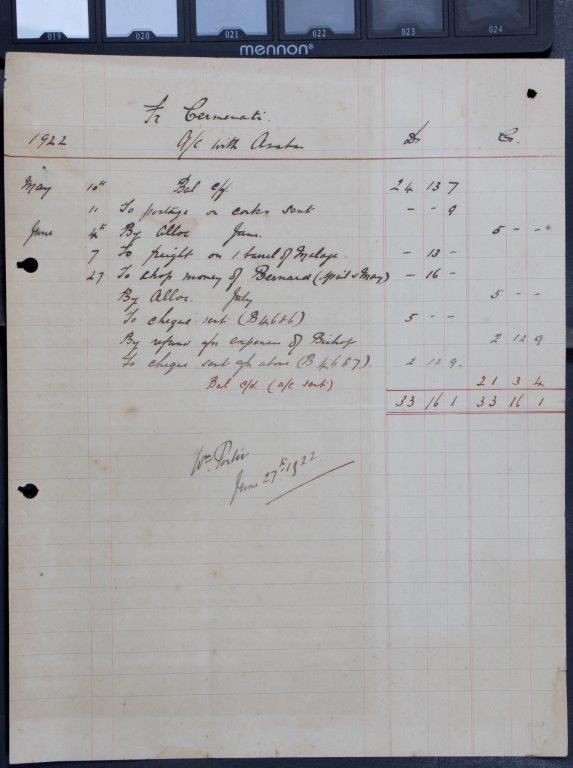 019 020 021 022 023 024
mennon®
Fr Cermenati.
1922 A/c with Asaba Dr Cr.
May 10th Bal c/f 24 13 7
11 To postage on corks sent - - 9
June 4th By Alloc June. 5 - -
7 To freight on 1 barrel of Malaga. - 13 -
27 To shop money of Bernard (April & May) - 16 -
By Alloc. July 5 - -
To cheque sent (B4686) 5 - -
By refund a/c expenses of Bishop 2 12 9
To cheque sent a/c above (B4687) 2 12 9.
Bal c/d. (a/c sent) 21 3 4
33 16 1 33 16 1
Wm. Porter
June 27th 1922